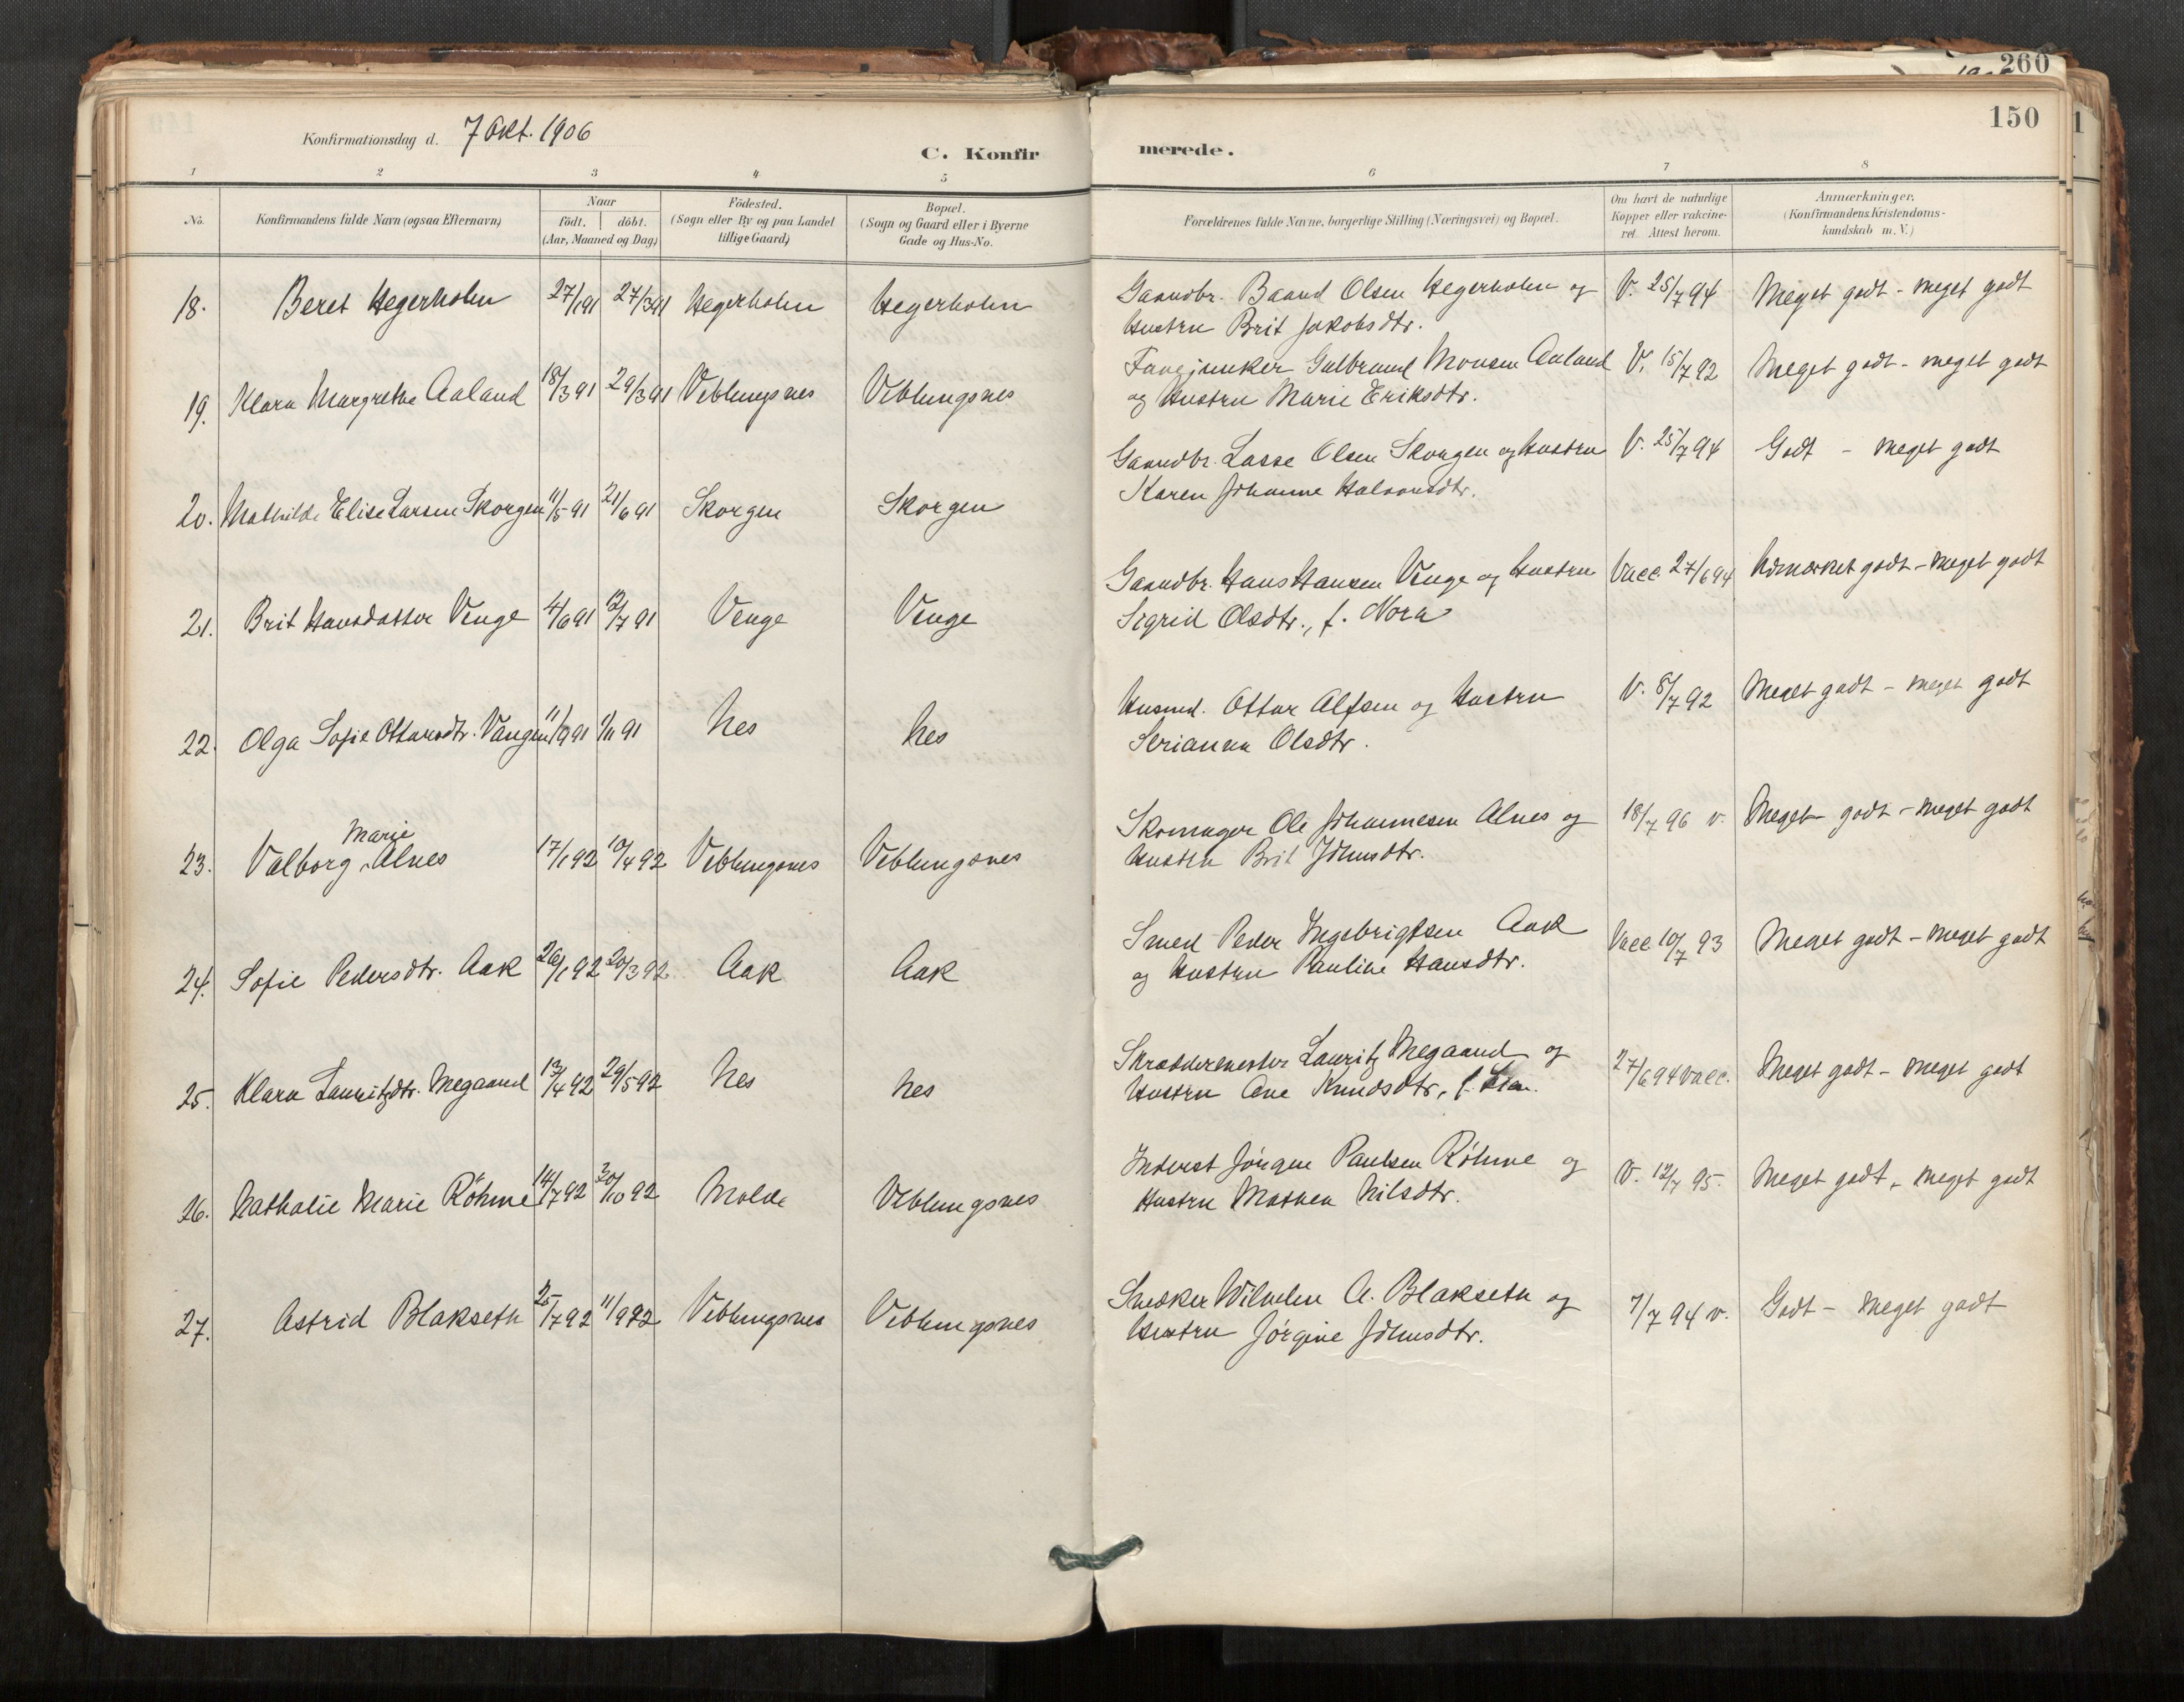 260
150
Konfirmationsdag d. 7 Okt. 1906
C. Konfirmerede.
1 2 3 4 5 6 7 8
No. Konfirmandens fulde Navn (ogsaa Efternavn) Naar födt. döbt. (Aar, Maaned og Dag) Födested. (Sogn eller By og paa Landet tillige Gaard) Bopæl. (Sogn og Gaard eller i Byerne Gade og Hus-No. Forældrenes fulde Navne, borgerlige Stilling (Næringsvei) og Bopæl. Om havt de naturlige Kopper eller vakcineret. Attest herom. Anmærkninger. (Konfirmandens Kristendomskundskab m. V.)
18. Beret Hegerholm 27/1 91 27/3 91 Hegerholm Hegerholm Gaardbr. Baard Olsen Hegerholm og V. 25/7 94 Meget godt - meget godt
Hustru Brit Jakobsdtr.
19. Klara Margrethe Aaland 18/3 91 29/3 91 Veblungsnes Veblungsnes Gulbrand Monsen Aaland V. 15/7 92 Meget godt - meget godt
og Hustru Marie Eriksdtr.
20. Mathilde Elise Larsen Skorgen 11/5 91 21/6 91 Skorgen Skorgen Gaardbr. Lasse Olsen Skorgen og Hustru V. 25/7 94 Godt - meget godt
Karen Johanne Halvorsdtr.
21. Brit Hansdatter Venge 4/6 91 12/7 91 Venge Venge Gaardbr. Hans Hansen Venge og Hustru Vacc. 27/6 94 Udmærket godt - meget godt
Sigrid Olsdtr., f. Nora
22. Olga Sofie Ottarsdtr. Vangen 11/9 91 1/11 91 Nes Nes Husmd. Ottar Alfsen og Hustru V. 8/7 92 Meget godt - meget godt
Serianna Olsdtr.
23. Valborg Marie Alnes 17/1 92 10/4 92 Veblungsnes Veblungsnes Skomager Ole Johannesen Alnes og 18/7 96 v. Meget godt - meget godt
Hustru Brit Johnsdtr.
24. Sofie Pedersdtr. Aak 26/1 92 20/3 92 Aak Aak Smed Peder Ingebrigtsen Aak Vacc 10/7 93 Meget godt - meget godt
og Hustru Pauline Hansdtr.
25. Klara Lauritzdtr. Megaard 13/4 92 29/5 92 Nes Nes Skræddermester Lauritz Megaard og 27/6 94 vacc. Meget godt - meget godt
Hustru Ane Knudsdtr., f.
26. Nathalie Marie Röhme 14/7 92 30/10 92 Molde Veblungsnes Inderst Jörgen Paulsen Röhme og V. 12/7 95. Meget godt - meget godt
Hustru Mathea Nilsdtr.
27. Astrid Blakseth 25/7 92 11/9 92 Veblungsnes Veblungsnes Snedker Wilhelm A. Blakseth og 7/7 94 v. Godt - meget godt
Hustru Jörgine Johnsdtr.